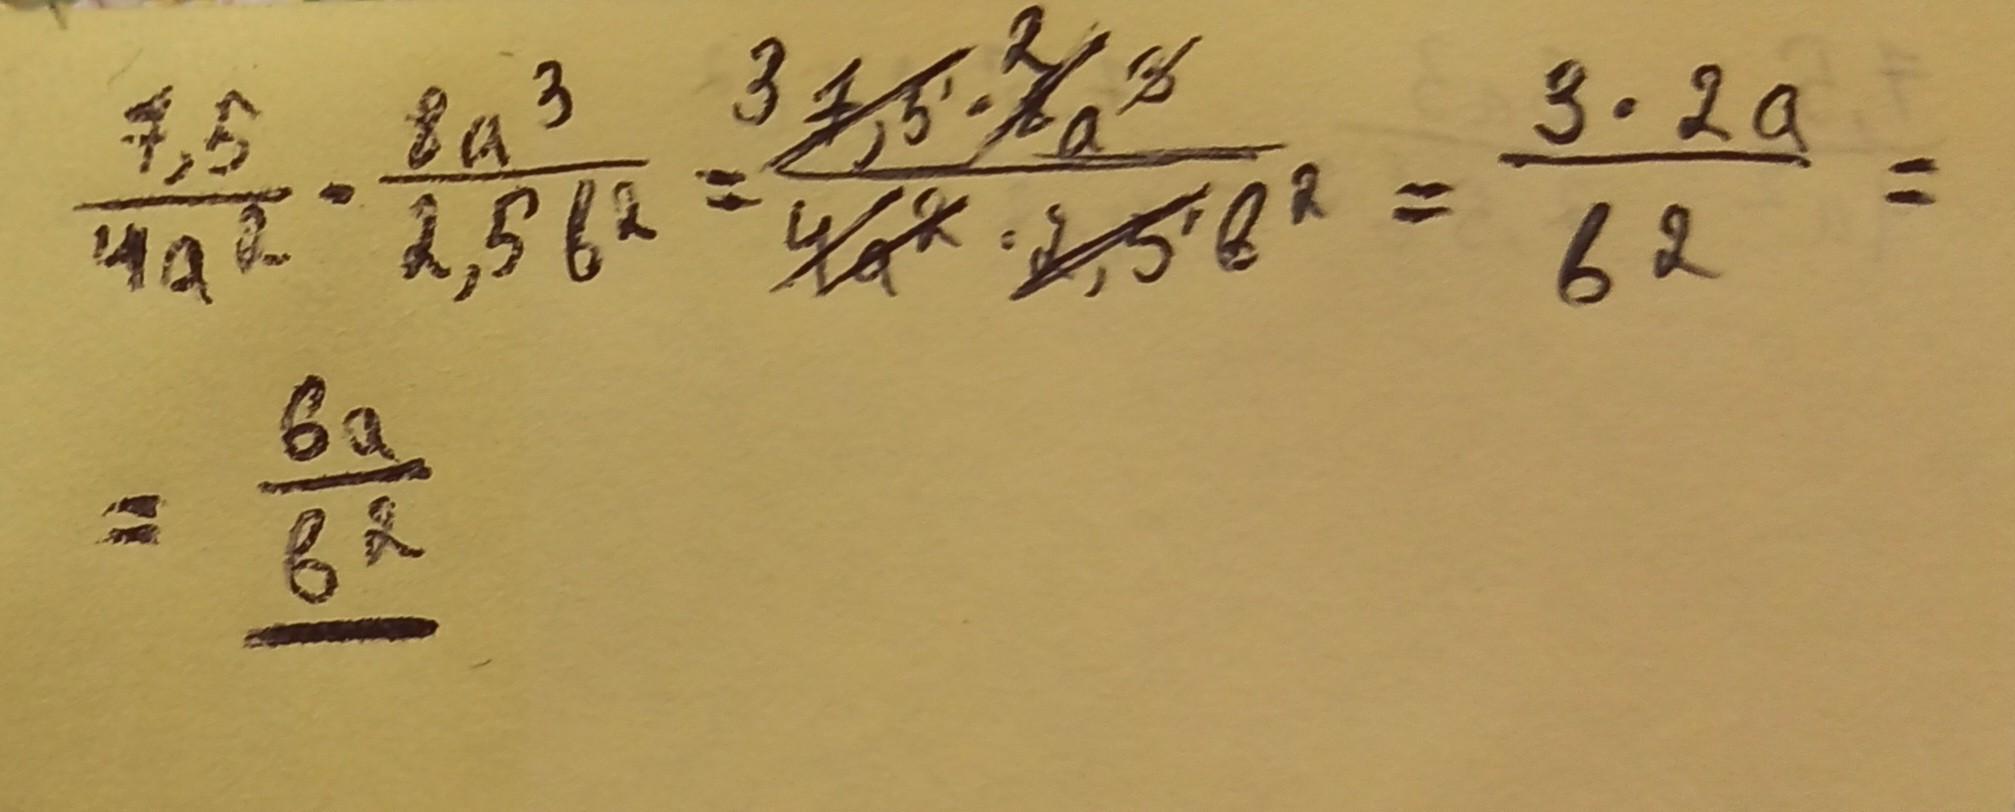 7,5/4a² · 8a³/2,5b² = 3 7,5 · 2 8a³/4a² · 2,5b² = 3 · 2a/b² =
= 6a/b²